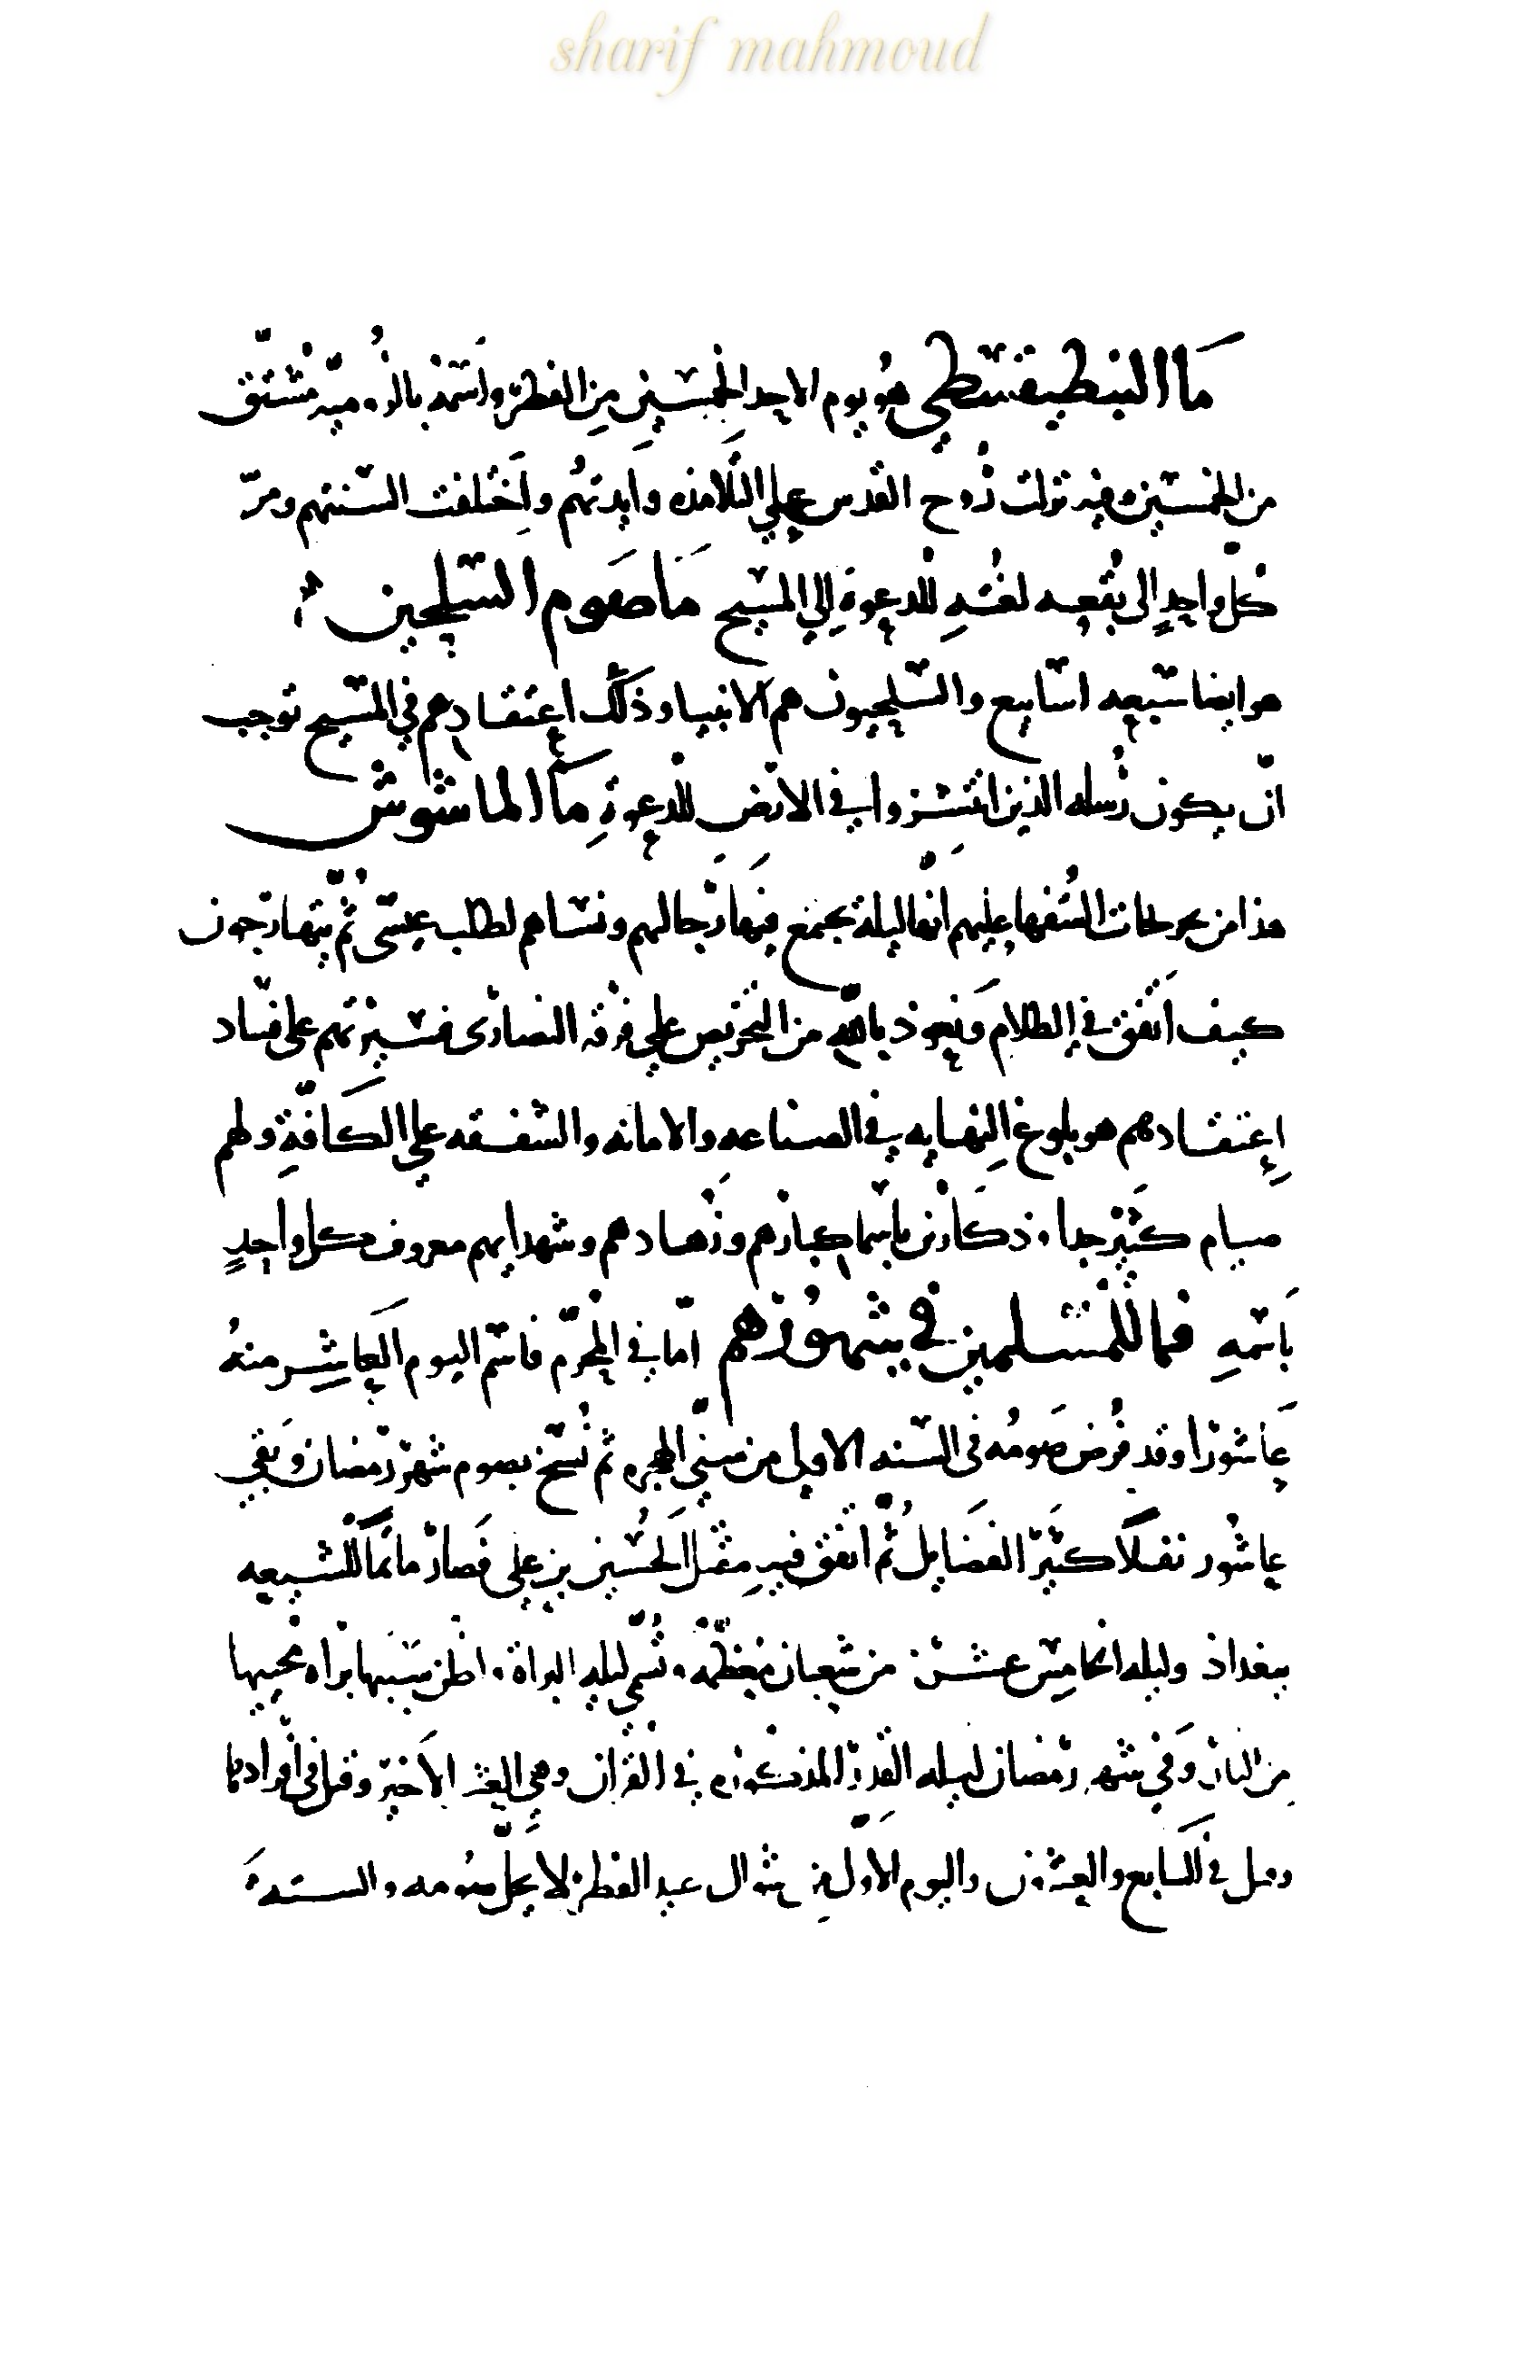 sharif mahmoud
ما البنطيقسطي هو يوم الاحد الخمسين من الفطر واسمه بالرومية مشتق
من الخمسين وفيه نزلت روح القدس علي التلامذه وايدتهم واختلفت السنتهم ومر
كل واحد الى بقعه لغته للدعوة الي المسيح ما صوم السليحين
هو ايضا سبعه اسابيع والسليحيون هم الانبيا وذلك اعتقادهم في المسيح توجب
ان يكون رسله الذين انتشروا في الارض للدعوة ما الماشوش
هذا من السفها عليهم انها ليلة يجتمع فيها رجالهم ونساهم لطلب عيسى ثم يتهارجون
كيف اتفق في الظلام ونعوذ بالله من التخريص علي فرقه النصارى فسيرتهم على فساد
اعتقادهم هو بلوغ النهايه في الصناعه والامانه والشفقه علي الكافة ولهم
صيام كثير جدا وذكارين باسما كبارهم وزهادهم وشهدايهم معروف كل واحد
باسمه فما للمسلمين في شهورهم اما في المحرم فاسم اليوم العاشر منه
عاشورا وقد فرض صومه فى السنه الاولي من سني الهجره ثم نسخ بصوم شهر رمضان وبقي
عاشور نفلا كثير الفضايل ثم اتفق فيه مقتل الحسين بن علي فصار ماتما للشيعه
ببغداد وليله الخامس عشر من شعبان معظمة تسمى ليله البراة اظن سببها براه محييها
من النار وفي شهر رمضان ليله القدر المذكوره في القران وهي العشر الاخير وقيل في افرادها
وقيل في السابع والعشرين واليوم الاول من شوال عيد الفطر لا يحل صومه والستة